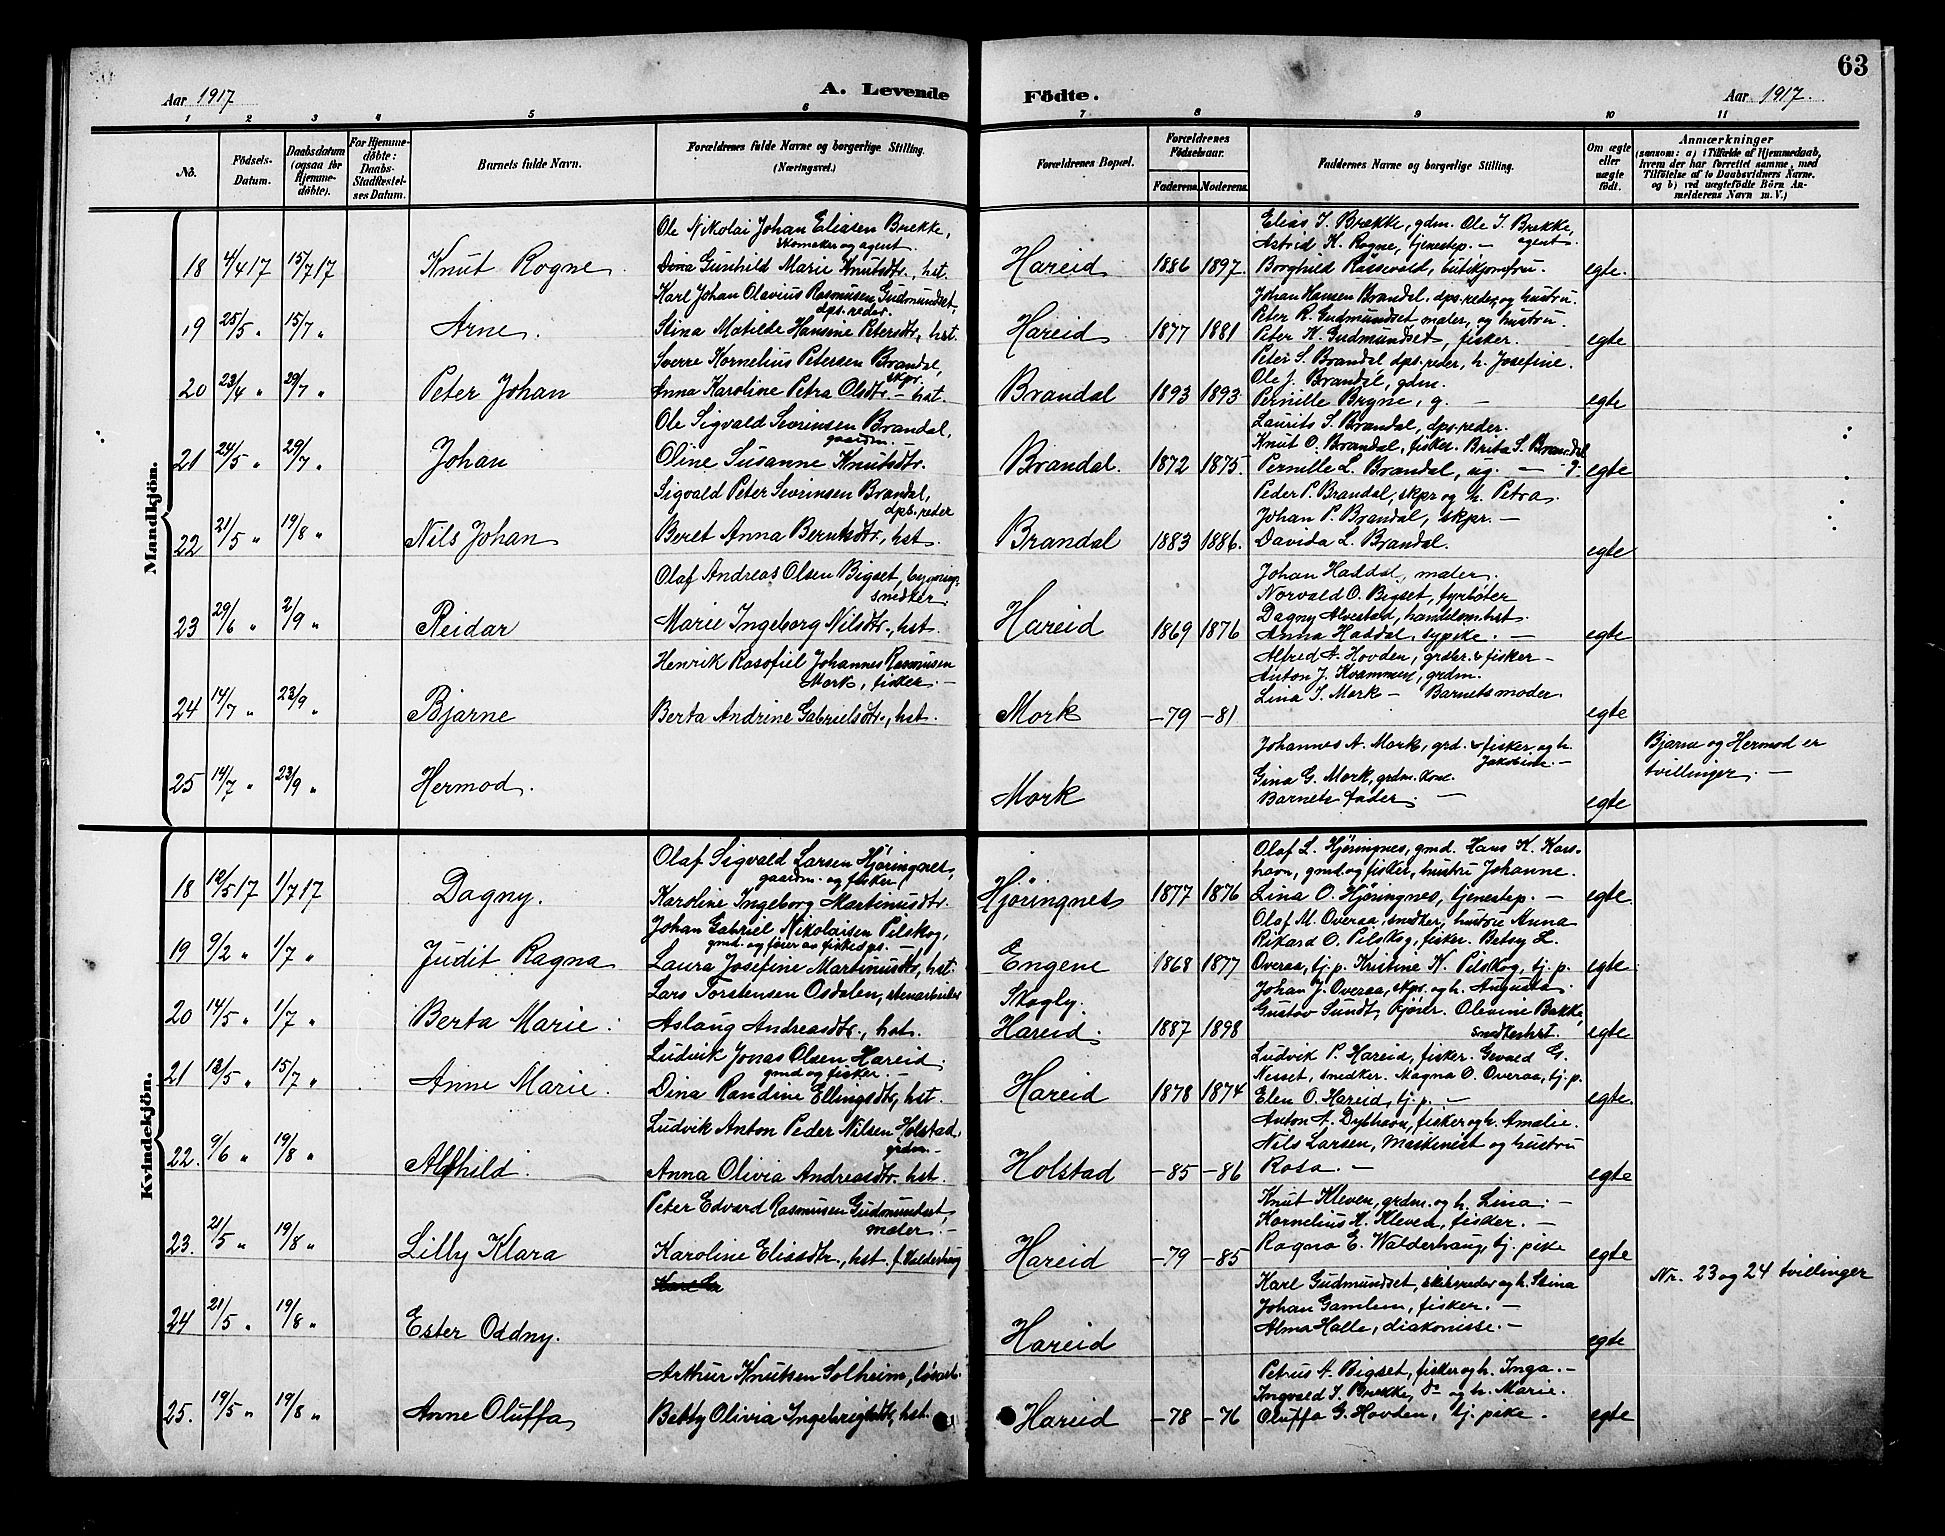 63
Aar 1917
A. Levende
Födte.
Aar 1917.
1 2 3 4 5 6 7 8 9 10 11
No.
Födsels-Datum.
Daabsdatum (ogsaa for Hjemmedöbte).
For Hjemmedöbte: Daabs-Stadfæstelses Datum.
Barnets fulde Navn.
Forældrenes fulde Navne og borgerlige Stilling. (Næringsvei.)
Forældrenes Bopæl.
Forældrenes Födselsaar.
Faderens. Moderens.
Faddernes Navne og borgerlige Stilling.
Om ægte eller uægte födt.
Anmærkninger
(saasom: a) i Tilfælde af Hjemmedaab, hvem der har forrettet samme, med Tilföielse af to Daabsvidners Navne. og b) ved uægtefödte Börn Anmelderens Navn m. V.)
Mandkjön.
Ole Nikolai Johan Eliasen Brekke,
skomaker og agent
18 4/4 17 15/7 17 Knut Rogne.
Dina Gunhild Marie Knutsdtr., hst.
Hareid 1886 1897.
Elias I. Brekke, gdm. Ole I. Brekke, agent.
Astrid K. Rogne, tjenestep. —
Borghild Røssevold, butikjomfru.
egte.
Karl Johan Olavius Rasmusen Gudmundset,
dps. reder.
19 25/5 " 15/7 " Arne.
Stina Matilde Hansine Petersdtr., hst.
Hareid 1877 1881
Johan Hansen Brandal, dps. reder, og hustru.
Peter R. Gudmundset maler, og hustru.
Peter K. Gudmundset, fisker.
egte
Sverre Kornelius Petersen Brandal,
skpr.
20 23/4 " 29/7 " Peter Johan
Anna Karoline Petra Olsdtr. — hst.
Brandal 1893 1893
Peter S. Brandal dps. reder, h. Josefine.
Ole J. Brandal, gdm.
Pernille Bryne, g. —
egte
Ole Sigvald Sevrinsen Brandal,
gaardm. —
21 24/5 " 29/7 " Johan
Oline Susanne Knutsdtr.
Brandal. 1872 1875.
Laurits S. Brandal, dps. reder.
Knut O. Brandal, fisker. Brita S. Brandal
Pernille L. Brandal, ug. — g.
egte
Sigvald Peter Sevrinsen Brandal,
dps. reder
22 21/5 " 19/8 " Nils Johan
Beret Anna Berntsdtr., hst.
Brandal 1883 1886.
Peder P. Brandal, skpr og h. Petra.
Johan P. Brandal, skpr. —
Davida L. Brandal.
egte
Olaf Andreas Olsen Bigset, bygnings-
snedker.
23 29/6 " 2/9 " Reidar
Marie Ingeborg Nilsdtr., hst.
Hareid 1869 1876
Johan Haddal, maler.
Norvald O. Bigset, fyrbøter
Dagny Alvestad, handelsm. hst.
Anna Haddal, sypike. —
egte
Henrik Rosofiel Johannes Rasmusen
Mork, fisker. —
24 14/7 " 23/9 " Bjarne
Berta Andrine Gabrielsdtr., hst.
Mork -79 -81
Alfred A. Hovden, grdbr. & fisker —
Anton J. Kvammen, grdm.
Lina I. Mork — Barnets moder.
egte
25 14/7 " 23/9 " Hermod.
Mork
Johannes A. Mork, grd. & fisker, og h. Jakobine. —
Gina G. Mork, grdm. kone.
Barnets fader. —
egte
Bjarne og Hermod er
tvillinger. —
Kvindekjön.
Olaf Sigvald Larsen Hjøringnes,
gaardm. og fisker
18 10/5 17 1/7 17 Dagny.
Karoline Ingeborg Martinusdtr.
Hjøringnes 1877 1876
Olaf L. Hjøringnes, gmd. Hans K. Kors-
havn, gmd. og fisker, hustru Johanne.
Lina O. Hjøringnes, tjenestep. —
egte.
Johan Gabriel Nikolaisen Pilskog,
gmd. og fører av fiskedps. —
19 9/2 " 1/7 " Judit Ragna
Laura Josefine Martinusdtr., hst.
Engene 1868 1877
Olaf M. Overaa, snedker, hustru Anna
Rikard O. Pilskog, fisker. Betsy L.
Overaa, tj. p. Kristine K. Pilskog, tj. p.
egte
Lars Torstensen Osdalen, stenarbeider
20 14/5 " 1/7 " Berta Marie.
Aslaug Andreasdtr., hst.
Skogly.
Hareid. 1887 1898
Johan J. Overaa, skpr. og h. Augusta.
Gustav Sundt, kjører. Olevine Bakke,
snedkerhst.
egte
Ludvik Jonas Olsen Hareid.
gmd og fisker. —
21 12/5 " 15/7 " Anne Marie.
Dina Randine Ellingsdtr., hst.
Hareid 1878 1874
Ludvik P. Hareid, fisker. Gevald G.
Nesset, snedker. Magna O. Overaa, tj. p.
Elen O. Hareid, tj. p. —
egte.
Ludvik Anton Peder Nilsen Holstad,
grdm. —
22. 9/6 " 19/8 " Alfhild.
Anna Olivia Andreasdtr. hst.
Holstad -85 -86
Anton A. Dybhavn, fisker og h. Amalie.
Nils Larsen, maskinist og hustru
Rosa. —
egte
Peter Edvard Rasmusen Gudmundset,
maler. —
23. 21/5 " 19/8 " Lilly Klara
Karoline Eliasdtr., hst. f. Valderhaug
Hareid -79 -85
Knut Kleven, grdm. og h. Lina. —
Kornelius K. Kleven, fisker. —
Ragna E. Walderhaug, tj. pike
egte
24 21/5 " 19/8 " Ester Oddny.
Hareid
Karl Gudmundset, skibsreder og h. Stina
Johan Gamlem, fisker. —
Alma Halle, diakonisse. —
egte
Nr. 23 og 24 tvillinger
Arthur Knutsen Solheim, løsarb.
25. 19/5 " 19/8 " Anne Oluffa
Betty Olivia Ingebrigtsdtr., hst.
Hareid -78 -76
Petrus A. Bigset, fisker og h. Inga. —
Ingvald I. Brekke, do og h. Marie.
Oluffa G. Hovden, tj. pike.
egte